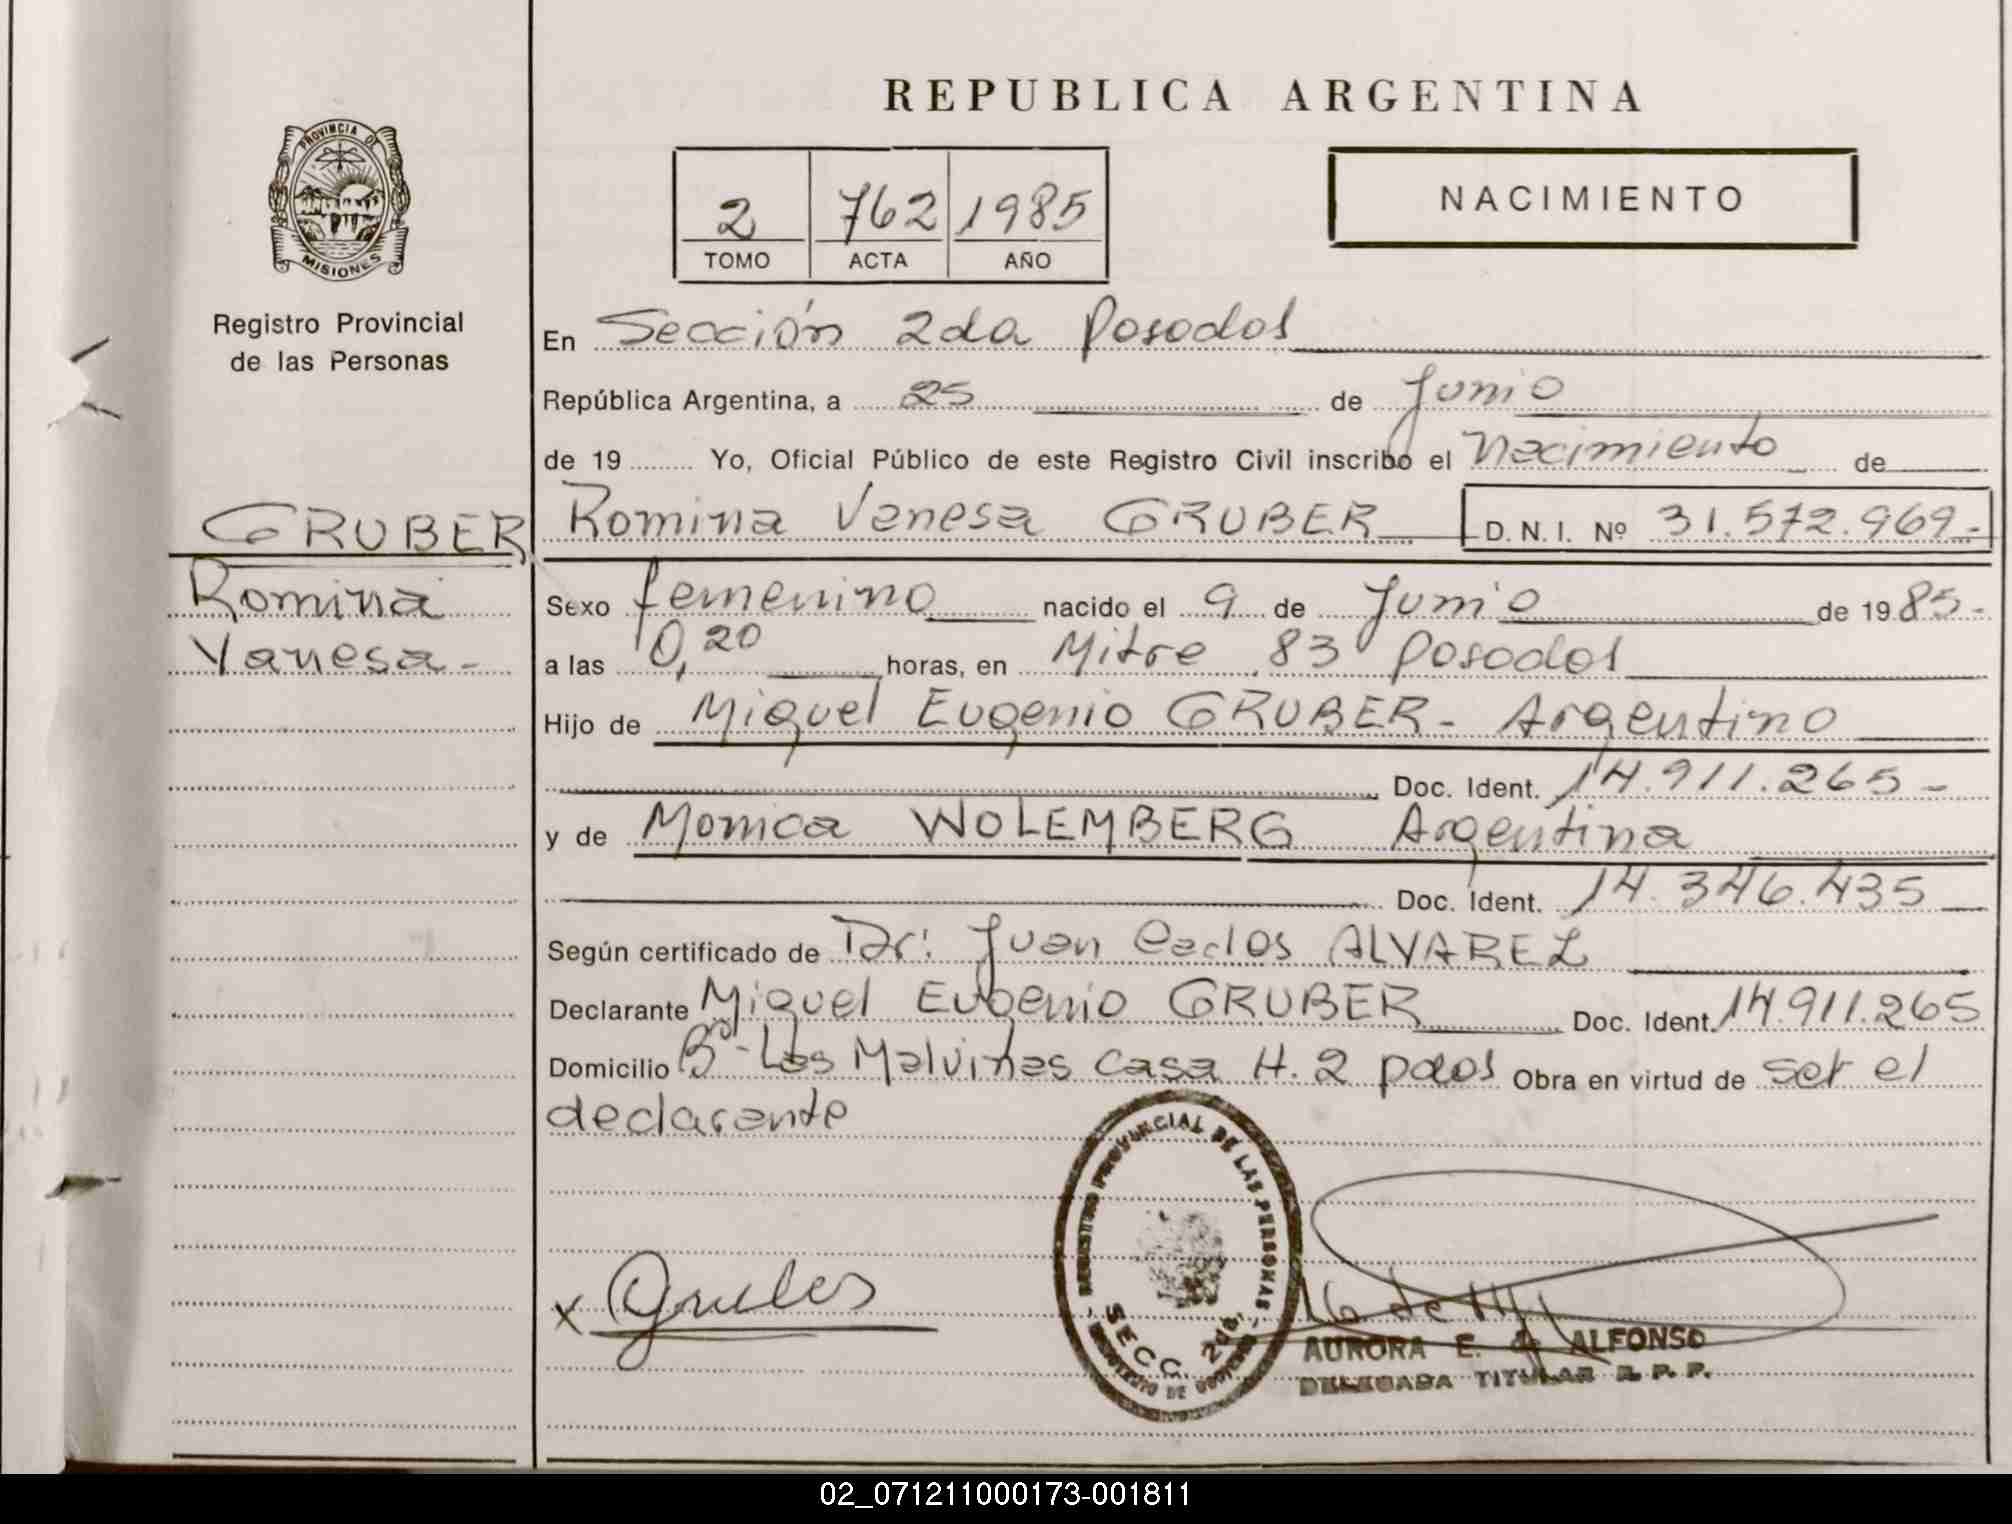 REPUBLICA ARGENTINA
PROVINCIA DE
MISIONES
Registro Provincial
de las Personas
2 762 1985
TOMO ACTA AÑO
NACIMIENTO
En Sección 2da Posadas
República Argentina, a 25 de Junio
de 19 Yo, Oficial Público de este Registro Civil inscribo el Nacimiento de
GRUBER
Romina
Vanesa -
Romina Vanesa GRUBER D. N. I. Nº 31.572.969.-
Sexo femenino nacido el 9 de Junio de 1985-
a las 0,20 horas, en Mitre 83 Posadas
Hijo de Miguel Eugenio GRUBER - Argentino
Doc. Ident. 14.911.265 -
y de Monica WOLEMBERG Argentina
Doc. Ident. 14.346.435
Según certificado de Dr: Juan Carlos ALVAREZ
Declarante Miguel Eugenio GRUBER Doc. Ident. 14.911.265
Domicilio Bº - Las Malvinas casa H. 2 pdas Obra en virtud de ser el
declarante
REGISTRO PROVINCIAL DE LAS PERSONAS
SECC. 2da.
x Gruber
AURORA E. G. ALFONSO
DELEGADA TITULAR R. P. P.
02_071211000173-001811